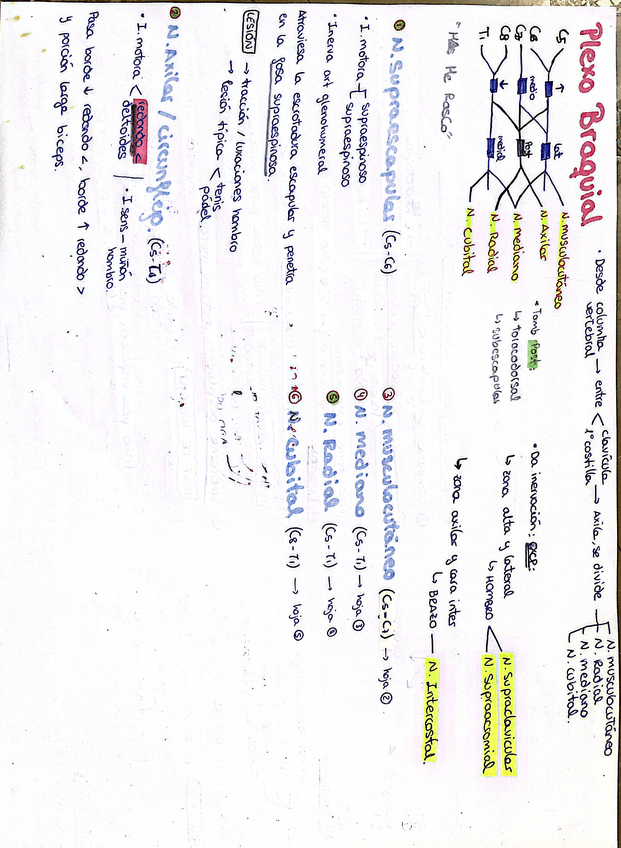 Plexo Braquial
• Desde columna vertebral → entre < clavícula
1º costilla → Axila, se divide → N. musculocutáneo
N. Radial
N. mediano
N. cubital.
C5
C6
C7
C8
T1
↑
medio
↓
Lat
Post
medial
N. musculocutáneo
N. Axilar
N. mediano
N. Radial
N. Cubital
• Tamb Post:
↳ toracodorsal
↳ subescapular
• Da inervación: exc:
↳ zona alta y lateral
↳ HOMBRO < N. Supraclavicular
N. Supraacromial
↳ zona axilar y cara inter
↳ BRAZO — N. Intercostal.
① N. Supraescapular (C5-C6)
• I. motora { supraespinoso
supraespinoso
• Inerva art glenohumeral
Atraviesa la escotadura escapular y penetra
en la fosa supraespinosa.
LESIÓN → tracción / luxaciones hombro
→ lesión típica < tenis
pádel.
② N. Axilar / circunflejo.
• I. motora < redondo <
deltoides
• I sens – muñón
hombro
Pasa borde ↓ redondo <, borde ↑ redondo >
y porción larga biceps.
③ N. musculocutáneo (C5-C7) → hoja ②
④ N. mediano (C5-T1) → hoja ③
⑤ N. Radial (C5-T1) → hoja ④
⑥ N. Cubital (C8-T1) → hoja ⑤